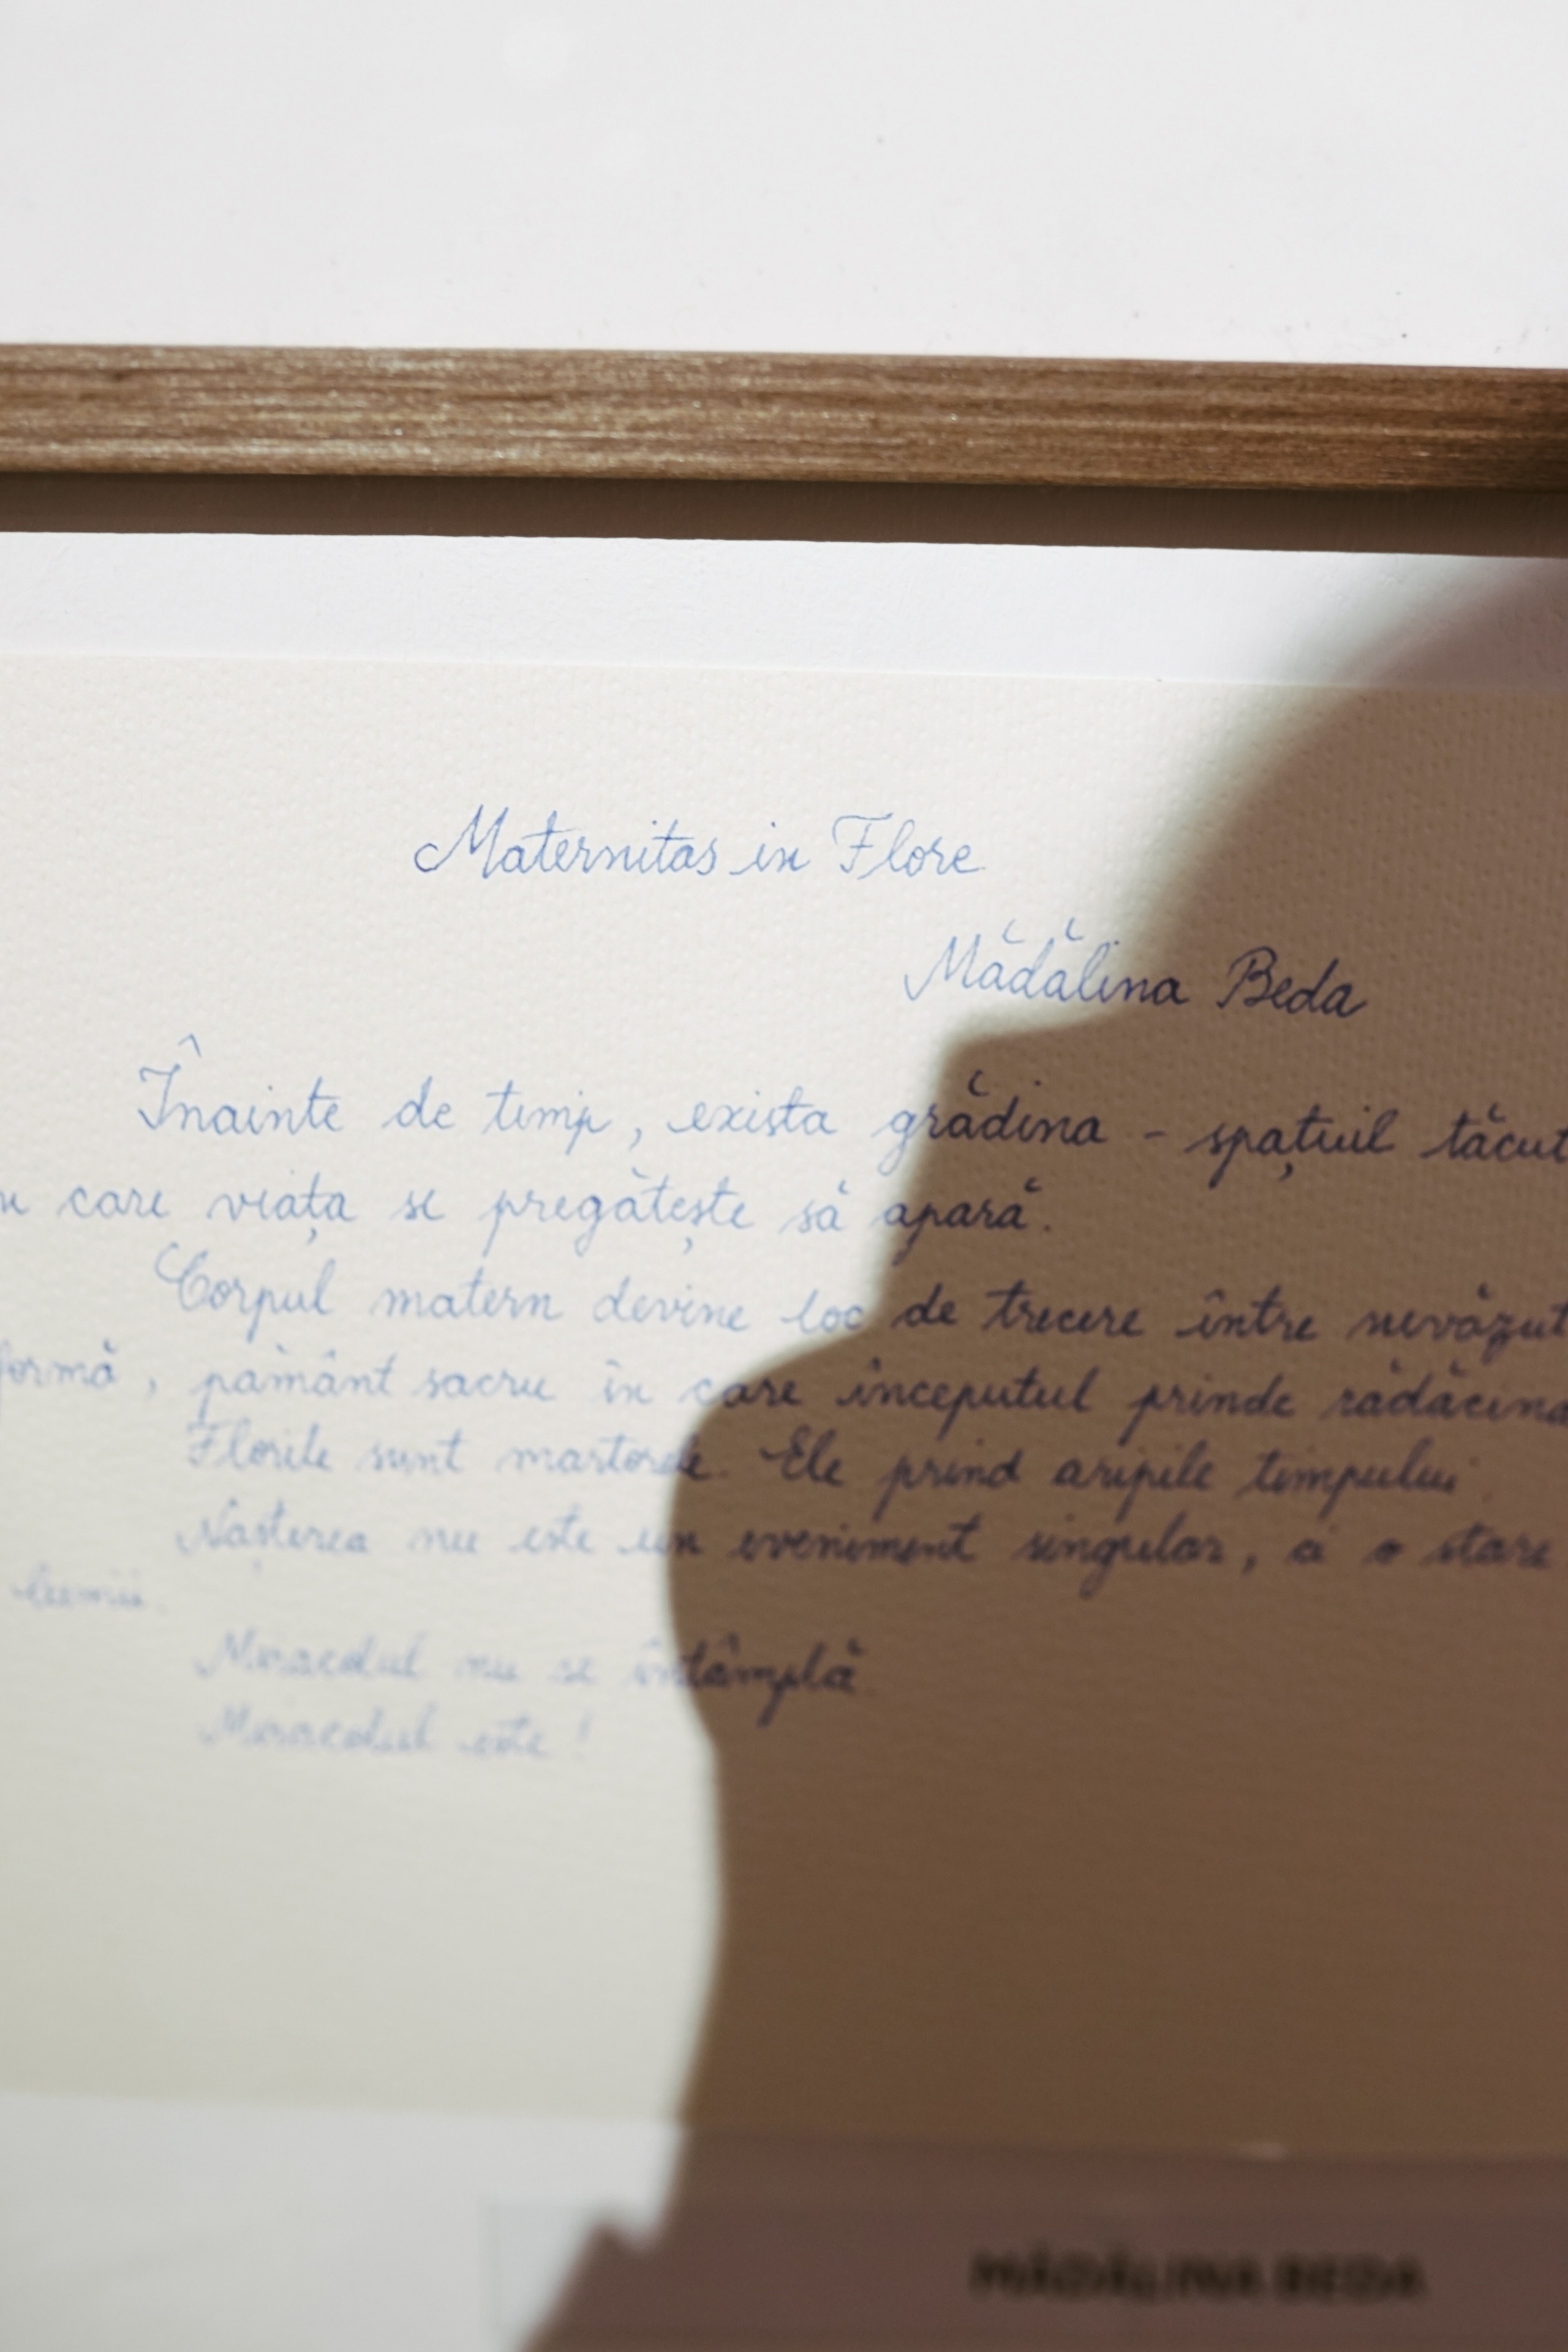 Maternitas in Flore
Mădălina Beda
Înainte de timp, exista grădina - spațiul tăcut
în care viața se pregătește să apară.
Corpul matern devine loc de trecere între nevăzut
formă, pământ sacru în care începutul prinde rădăcina
Florile sunt martorele. Ele prind aripile timpului
Nașterea nu este un eveniment singular, ci o stare
lumii.
Miracolul nu se întâmplă
Miracolul este!
MĂDĂLINA BEDA